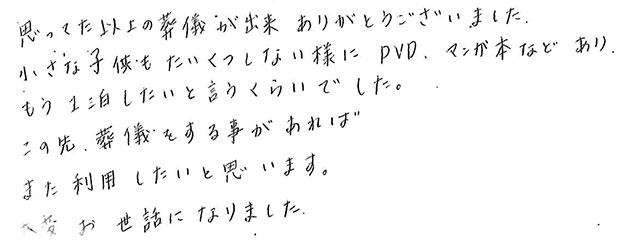 思ってた以上の葬儀が出来 ありがとうございました.
小さな子供も たいくつしない様に DVD、マンガ本など あり、
もう1泊したいと言うくらいでした。
この先、葬儀をする事があれば
また 利用 したいと思います。
大変 お世話に なりました.